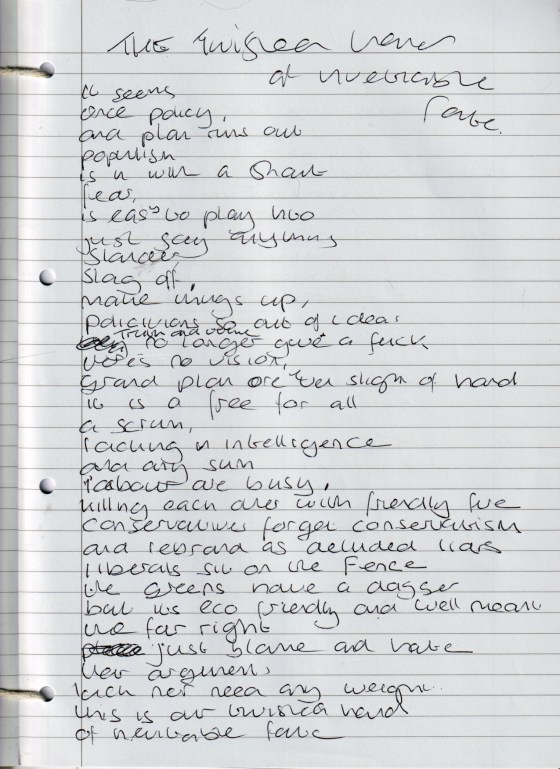 THE twisted hand
of inevitable
fate.
it seems
once policy,
and plan runs out
populism
is in with a shout
fear,
is easy to play into
just say anything
slander,
slag off,
make things up,
politicians so out of ideas
truth and
no longer give a fuck
there's no vision,
grand plan or even slight of hand
it is a free for all
a scrum,
lacking in intelligence
and any sum
Labour are busy,
killing each other with friendly fire
conservatives forget conservatism
and rebrand as deluded liars
liberals sit on the fence
the greens have a dagger
but its eco friendly and well meant
the far right
just blame and hate
their arguments,
each not need any weight..
this is our twisted hand
of inevitable fate